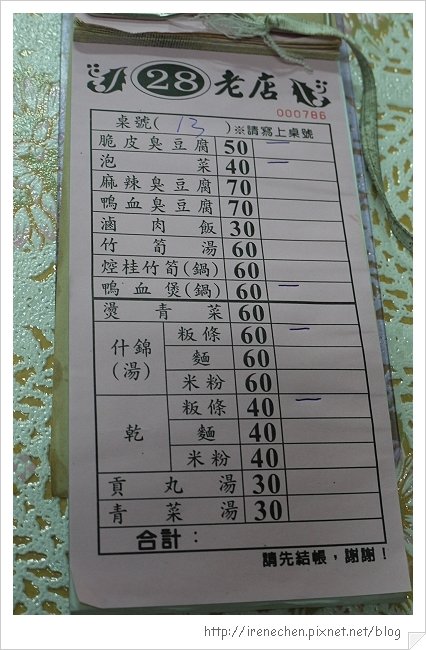 28 老店
000786
桌號( 13 ) ※請寫上桌號
脆皮臭豆腐 50 一
泡菜 40 一
麻辣臭豆腐 70
鴨血臭豆腐 70
滷肉飯 30
竹筍湯 60
焢桂竹筍(鍋) 60
鴨血煲(鍋) 60 一
燙青菜 60
什錦(湯) 粄條 60 一
麵 60
米粉 60
乾 粄條 40 一
麵 40
米粉 40
貢丸湯 30
青菜湯 30
合計：
請先結帳，謝謝！
http://irenechen.pixnet.net/blog